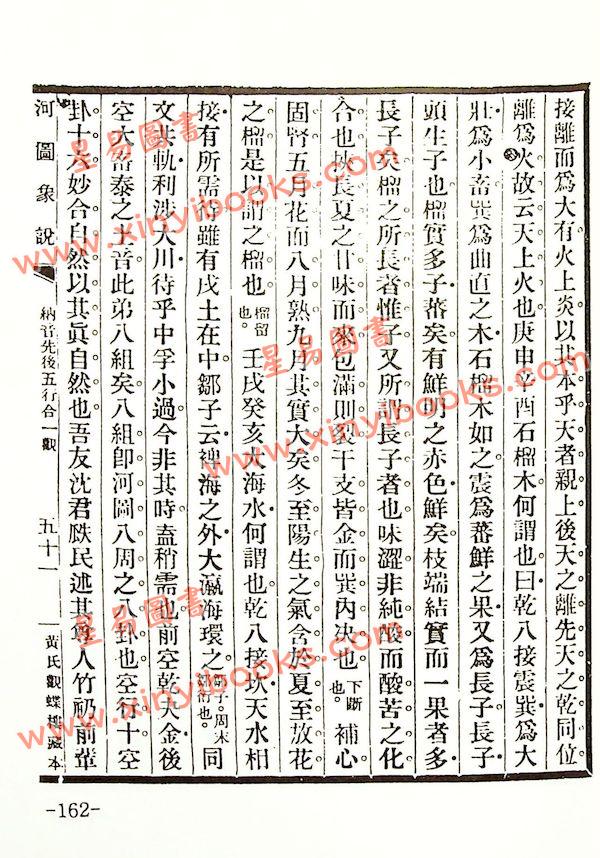 接離而爲大有火上炎以其本乎天者親上後天之離先天之乾同位
離爲火故云天上火也庚申辛酉石榴木何謂也曰乾八接震巽爲大
壯爲小畜巽爲曲直之木石榴木如之震爲蕃鮮之果又爲長子長子
頭生子也榴實多子蕃矣有鮮明之赤色鮮矣枝端結實而一果者多
長子矣榴之所長者惟子又所謂長子者也味澀非純酸而酸苦之化
合也挾長夏之甘味而來包滿則裂干支皆金而巽內決也下斷也。補心
固腎五月花而八月熟九月其實大矣冬至陽生之氣含於夏至放花
之榴是以謂之榴也榴留也。壬戌癸亥大海水何謂也乾八接坎天水相
接有所需待雖有戌土在中鄒子云裨海之外大瀛海環之鄒子周末鄒衍也。同
文共軌利涉大川待乎中孚小過今非其時盍稍需也前空乾九金後
空大畜泰之土音此第八組矣八組卽河圖八周之八卦也空行十空
卦十六妙合自然以其眞自然也吾友沈君瓞民述其尊人竹礽前輩
河圖象說
納音先後五行合一觀
五十一
黃氏觀蝶樓藏本
-162-
星易圖書
www.xinyibooks.com
星易圖書
www.xinyibooks.com
星易圖書
www.xinyibooks.com